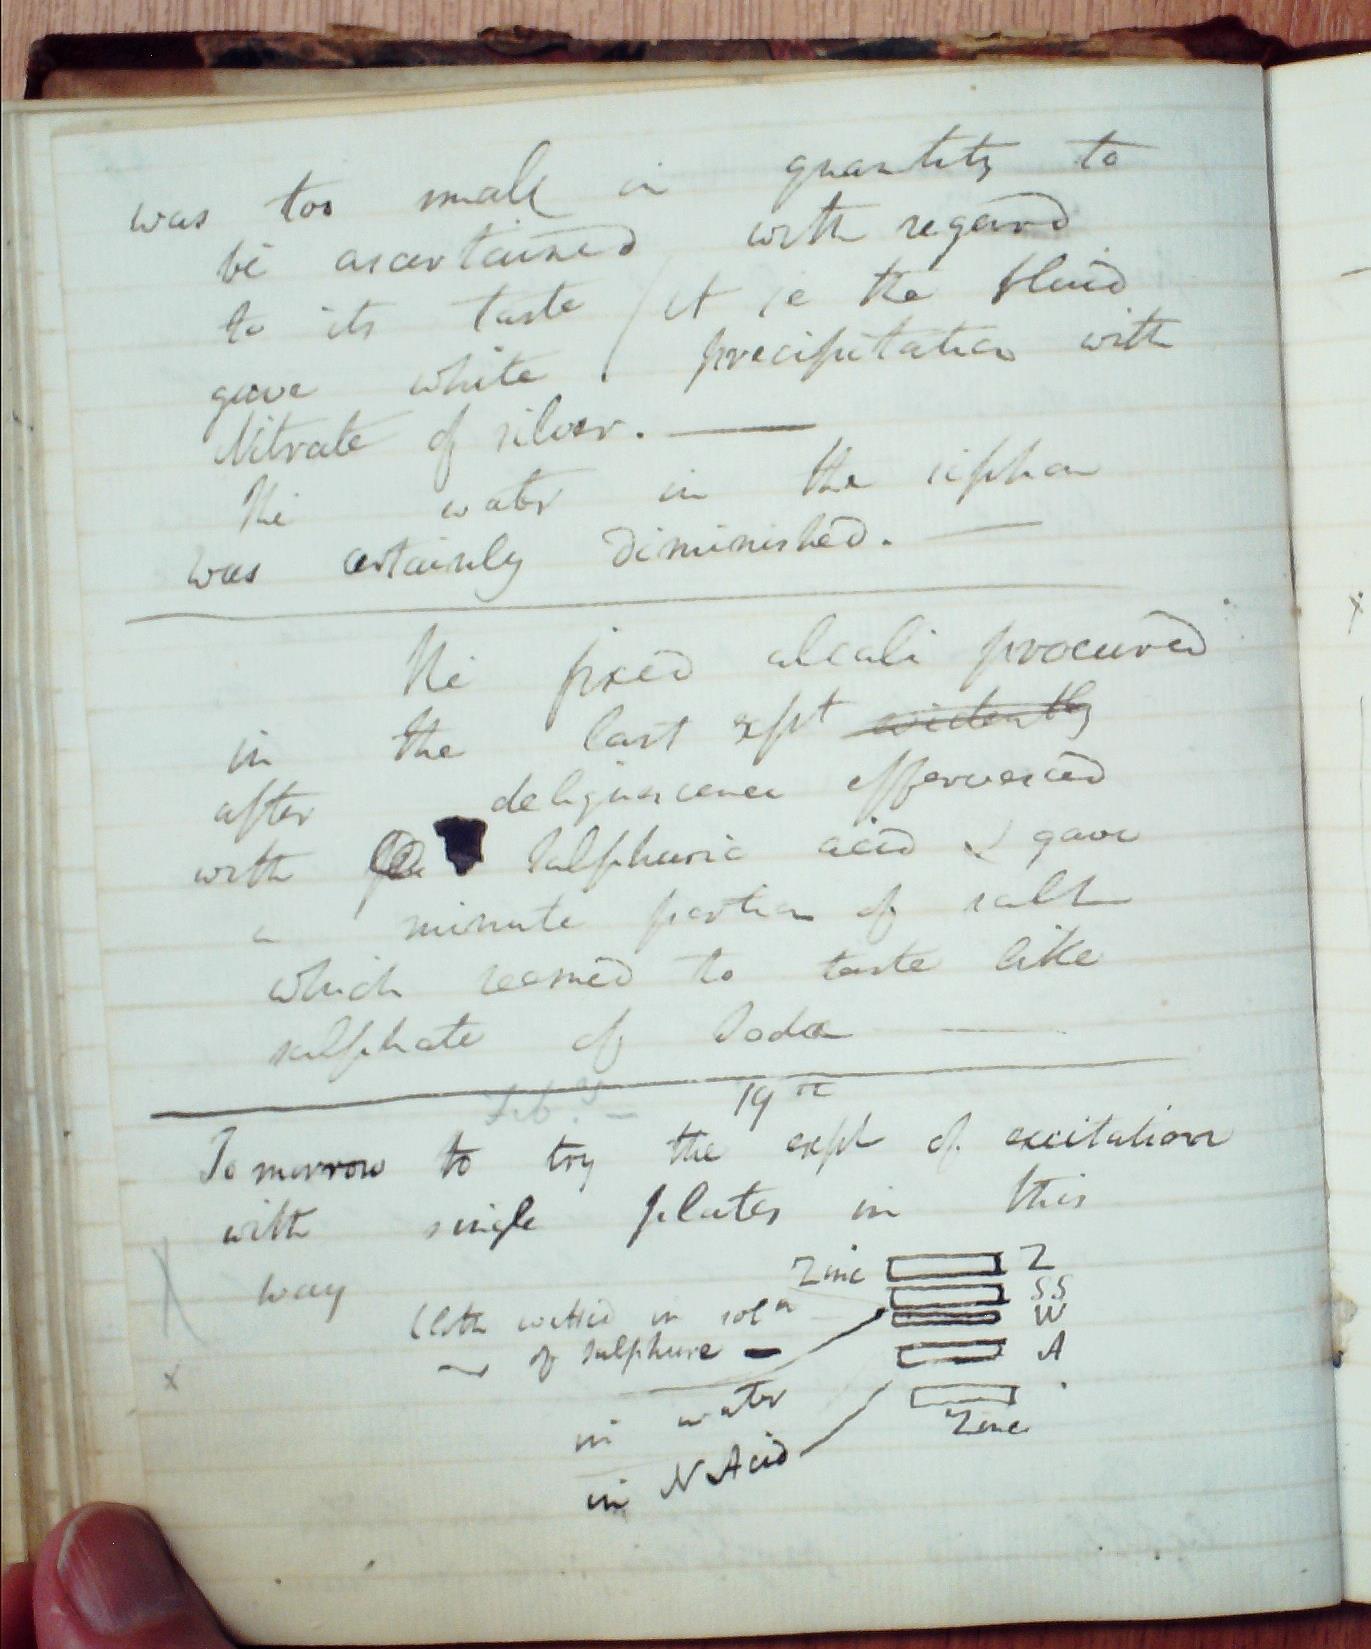 was too small in quantity to
be ascertained with regard
to its taste / it ie the fluid
gave white / precipitation with
Nitrate of silver. —
The water in the siphon
was certainly diminished. —
The fixed alcali procured
in the last expt evidently
after deliquescence effervesced
with sulphuric acid & gave
a minute portion of salt
which seemed to taste like
sulphate of soda —
Feb.y 19th
Tomorrow to try the expt of excitation
with single plates in this
way
Zinc Z
Cloth wetted in soln SS
of sulphure W
A
in water
Zinc
in N Acid
x